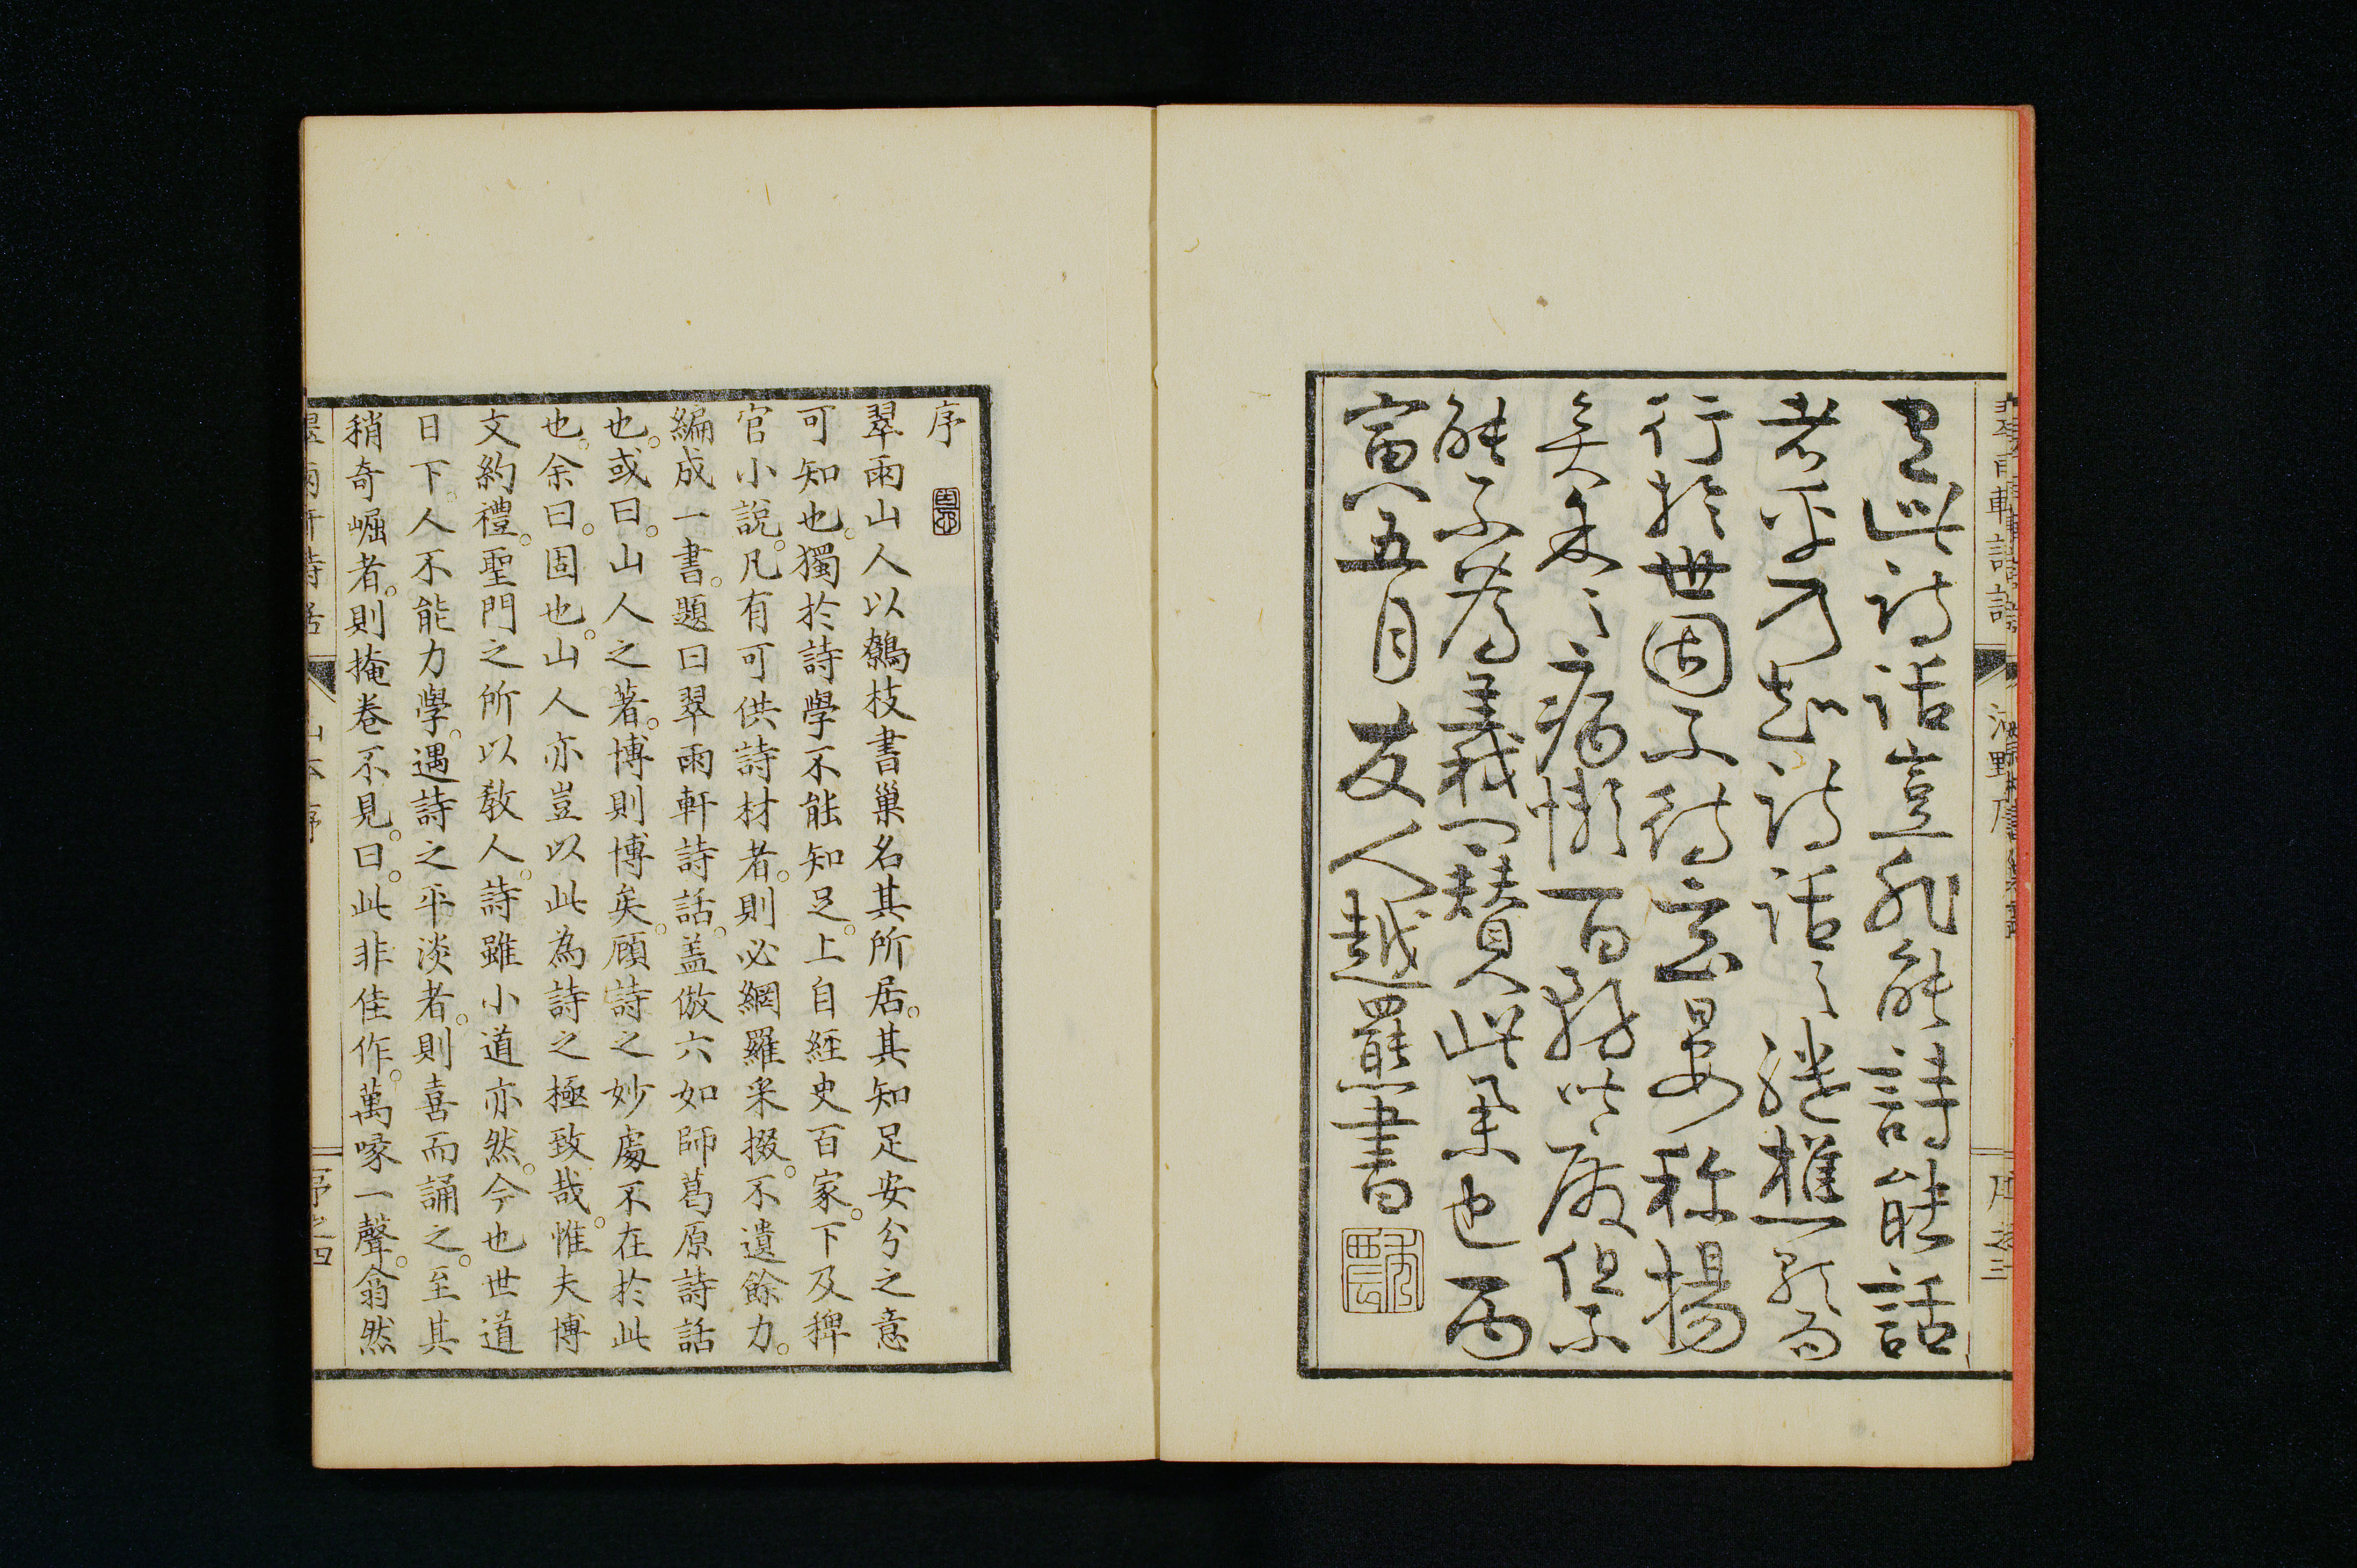 有此詩話豈非能詩能話
者乎乃知詩話之
行於世固不待言
矣 病懶百 以廢但不
能不為義 賛此業也丙
寅五月友人越羆書
序
翠雨山人以鷦枝書巢名其所居。其知足安分之意
可知也。獨於詩學不能知足。上自經史百家。下及稗
官小說。凡有可供詩材者。則必網羅采掇。不遺餘力。
編成一書。題曰翠雨軒詩話。盖倣六如師葛原詩話
也。或曰。山人之著。博則博矣。顧詩之妙處不在於此
也。余曰。固也。山人亦豈以此為詩之極致哉。惟夫博
文約禮。聖門之所以教人。詩雖小道亦然。今也世道
日下。人不能力學。遇詩之平淡者。則喜而誦之。至其
稍奇崛者。則掩卷不見。曰。此非佳作。萬喙一聲。翕然
翠雨軒詩話
山本序
序之四